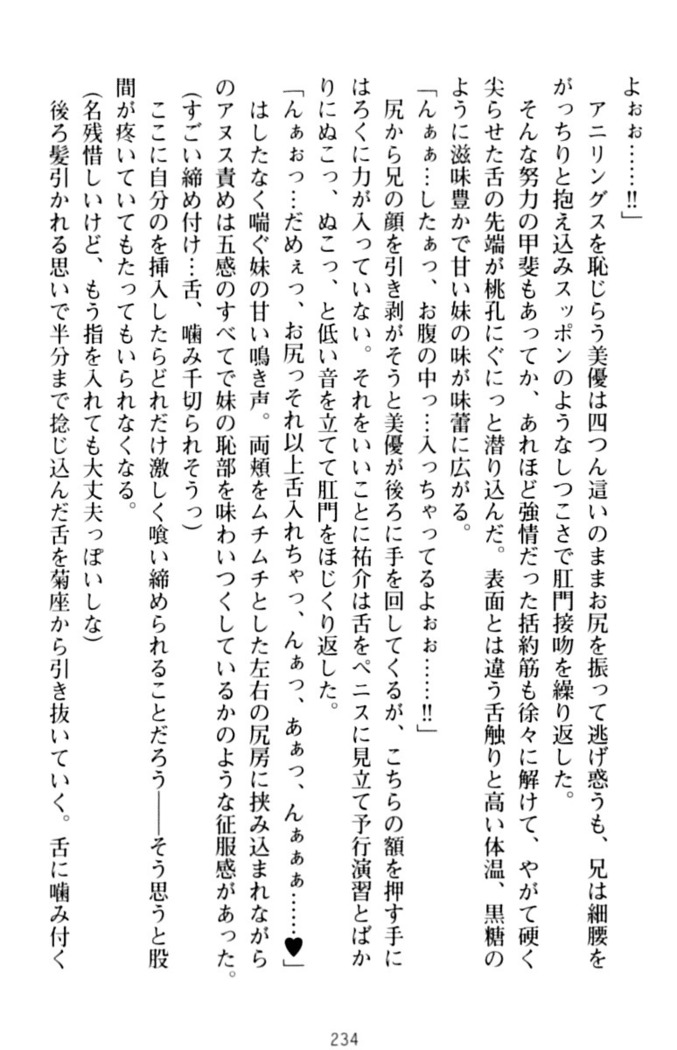 よぉぉ……!!」
　アニリングスを恥じらう美優は四つん這いのままお尻を振って逃げ惑うも、兄は細腰を
がっちりと抱え込みスッポンのようなしつこさで肛門接吻を繰り返した。
　そんな努力の甲斐もあってか、あれほど強情だった括約筋も徐々に解けて、やがて硬く
尖らせた舌の先端が桃孔にぐにっと潜り込んだ。表面とは違う舌触りと高い体温、黒糖の
ように滋味豊かで甘い妹の味が味蕾に広がる。
「んぁぁ…したぁっ、お腹の中っ…入っちゃってるよぉぉ……!!」
　尻から兄の顔を引き剥がそうと美優が後ろに手を回してくるが、こちらの額を押す手に
はろくに力が入っていない。それをいいことに祐介は舌をペニスに見立て予行演習とばか
りにぬこっ、ぬこっ、と低い音を立てて肛門をほじくり返した。
「んぁぉっ…だめぇっ、お尻っそれ以上舌入れちゃっ、んぁっ、あぁっ、んぁぁぁ……♥」
　はしたなく喘ぐ妹の甘い鳴き声。両頬をムチムチとした左右の尻房に挟み込まれながら
のアヌス責めは五感のすべてで妹の恥部を味わいつくしているかのような征服感があった。
(すごい締め付け…舌、噛み千切られそうっ)
　ここに自分のを挿入したらどれだけ激しく喰い締められることだろう――そう思うと股
間が疼いていてもたってもいられなくなる。
(名残惜しいけど、もう指を入れても大丈夫っぽいしな)
　後ろ髪引かれる思いで半分まで捻じ込んだ舌を菊座から引き抜いていく。舌に噛み付く
234